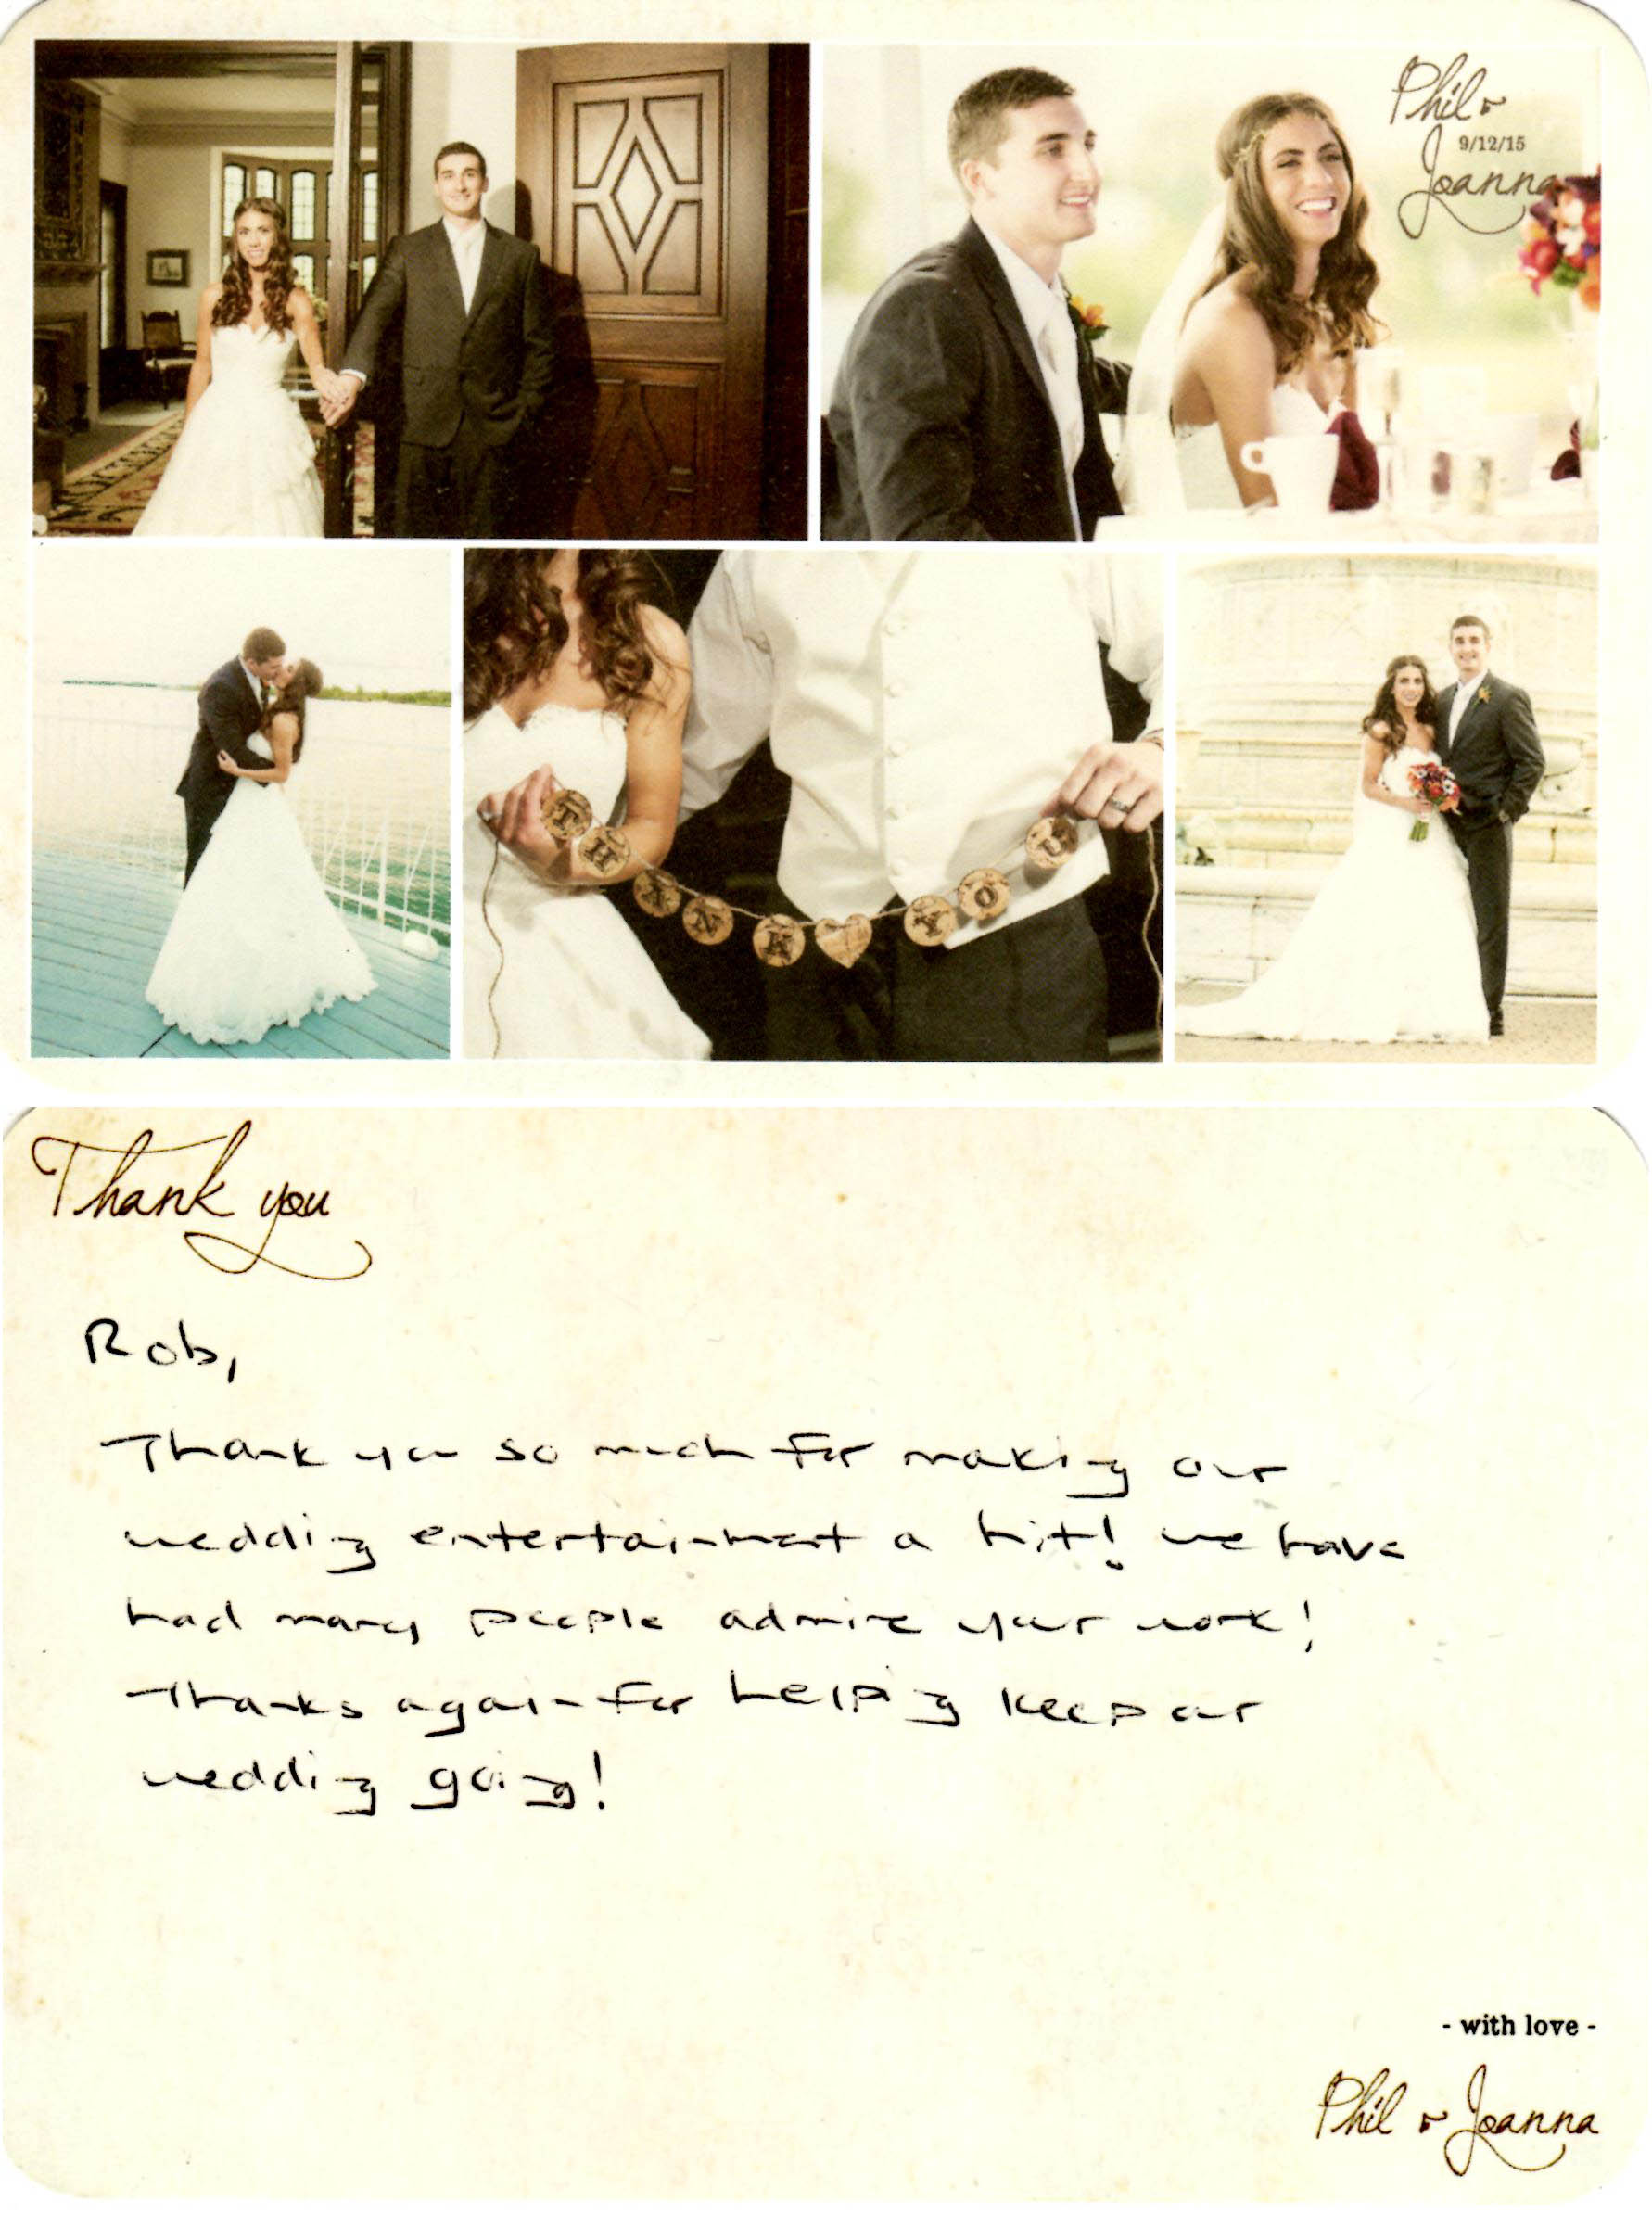 Phil &
9/12/15
Joanna
THANK YOU
Thank you
Rob,
Thank you so much for making our
wedding entertainment a hit! we have
had many people admire your work!
Thanks again for helping keep our
wedding going!
- with love -
Phil & Joanna